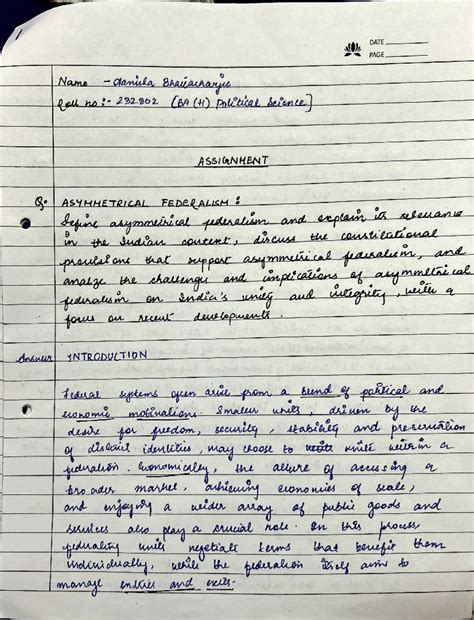 DATE
PAGE
Name - Bhattacharjee
Roll no :- 232802 [BA (H) Political Science]
ASSIGNMENT
Q. ASYMMETRICAL FEDERALISM :
Define asymmetrical federalism and explain its relevance
in the Indian context, discuss the constitutional
provisions that support asymmetrical federalism, and
analze the challenges and implications of asymmetrical
federalism on India's unity and integrity, with a
focus on recent developments.
Answer INTRODUCTION
Federal systems often arise from a blend of political and
economic motivations. Smaller units, driven by the
desire for freedom, security, stability and preservation
of distinct identities, may choose to unite within a
federation. Economically, the allure of accessing a
broader market, achieving economies of scale,
and enjoying a wider array of public goods and
services also play a crucial role. In this process,
federating units negotiate terms that benefit them
individually, while the federation itself aims to
manage entries and exits.